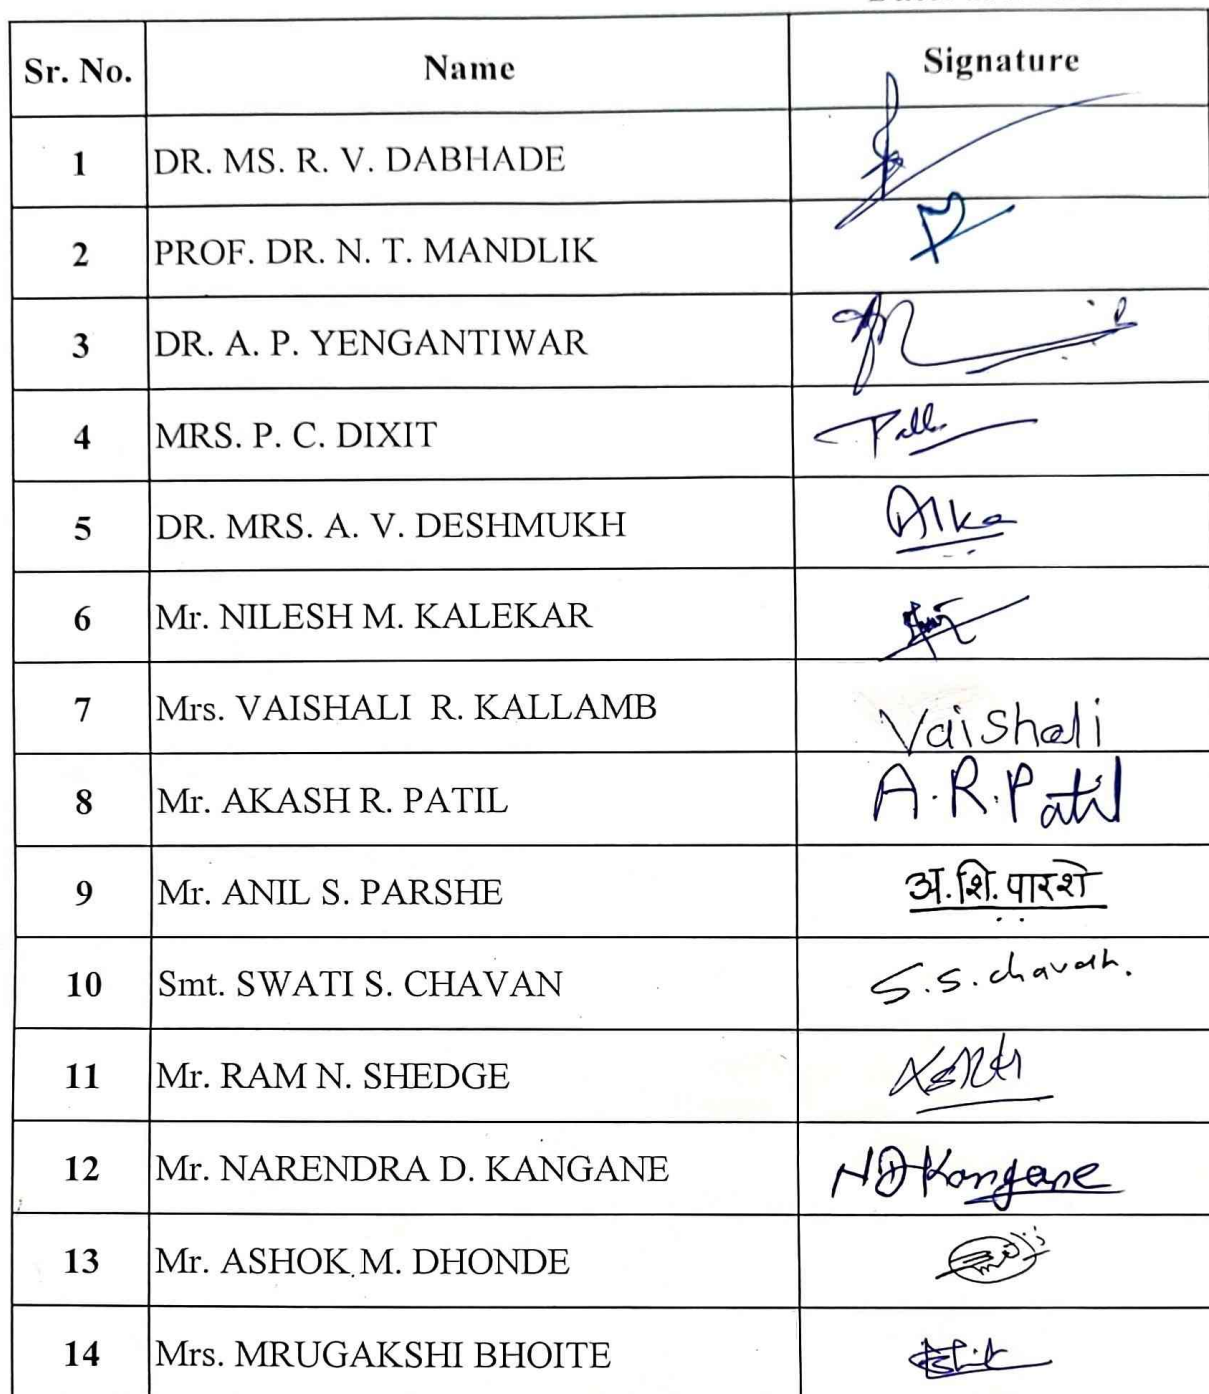 Sr. No. Name Signature
1 DR. MS. R. V. DABHADE
2 PROF. DR. N. T. MANDLIK
3 DR. A. P. YENGANTIWAR
4 MRS. P. C. DIXIT
5 DR. MRS. A. V. DESHMUKH Alka
6 Mr. NILESH M. KALEKAR
7 Mrs. VAISHALI R. KALLAMB Vaishali
8 Mr. AKASH R. PATIL A.R.Patil
9 Mr. ANIL S. PARSHE अ.शि.पारशे
10 Smt. SWATI S. CHAVAN S.S.chavan.
11 Mr. RAM N. SHEDGE
12 Mr. NARENDRA D. KANGANE NDKangane
13 Mr. ASHOK M. DHONDE
14 Mrs. MRUGAKSHI BHOITE